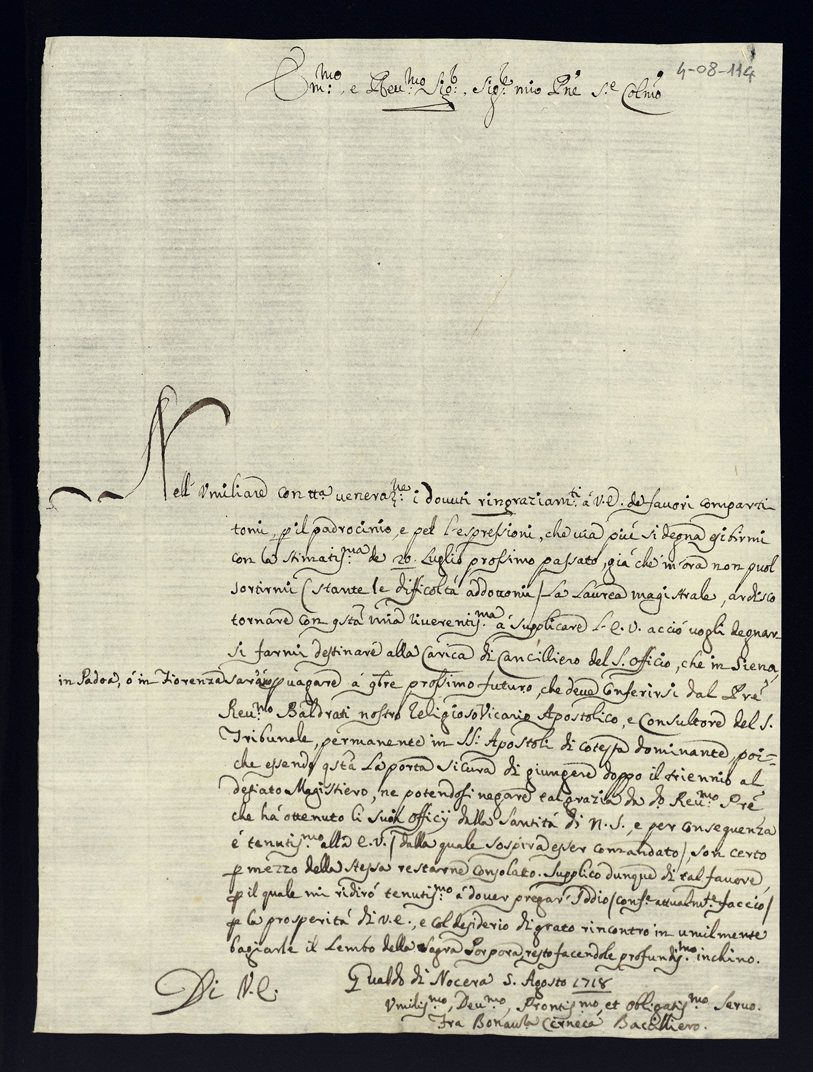 4-08-114
Em:mo, e Reu:mo Sig:r, Sig:re mio Pne S:e Colmo
Nell' Vmiliare con tta venera:ne i douuti ringraziam:ti á V.E. de fauori comparti
tomi, p il padrocinio, e pell'espressioni, che uia piú si degna esibirmi
con la stimatis:ma de 20. Luglio prossimo passato, giá che in ora non puol
sortirmi (stante le difficoltá addottomi) La Laurea magistrale, ardisco
tornare con qsta mia riuerentis:ma á supplicare l'E.V. acció uogli degnar
si farmi destinare alla Carica di Cancilliero del S. Officio, che in Siena,
in Padoa, ó in Fiorenza sará p uagare á 7bre prossimo futuro, che deue Conferirsi dal Pre
Reu:mo Baldrati nostro Religioso Vicario Apostolico, e Consultore del S.
Tribunale, permanente in SS. Apostoli di cotesta dominante poi=
che essendo qsta la porta sicura di giungere doppo il triennio al
desiato Magistiero, ne potendosi negare tal grazia da do Reu:mo Pre
che há ottenuto li suoi officij dalla Santitá di N.S., e per conseguenza
é tenutis:mo alla E.V. (dalla quale sospira esser comandato) son certo
p mezzo della stessa restarne consolato. Supplico dunque di tal fauore,
p il quale mi ridiró tenutis:mo á douer pregar' Iddio (conf:e attualm:te faccio)
p la prosperitá di V.E., e col desiderio di grato rincontro in umilmente
bagiarle il Lembo della Sagra Porpora resto facendole profundis:mo inchino.
Di V.E. Gualdo di Nocera 5. Agosto 1718
Vmilis:mo, Deu:mo, Prontis:mo, et obligatis:mo Seruo.
Fra Bonauta Cerneca Baccilliero.